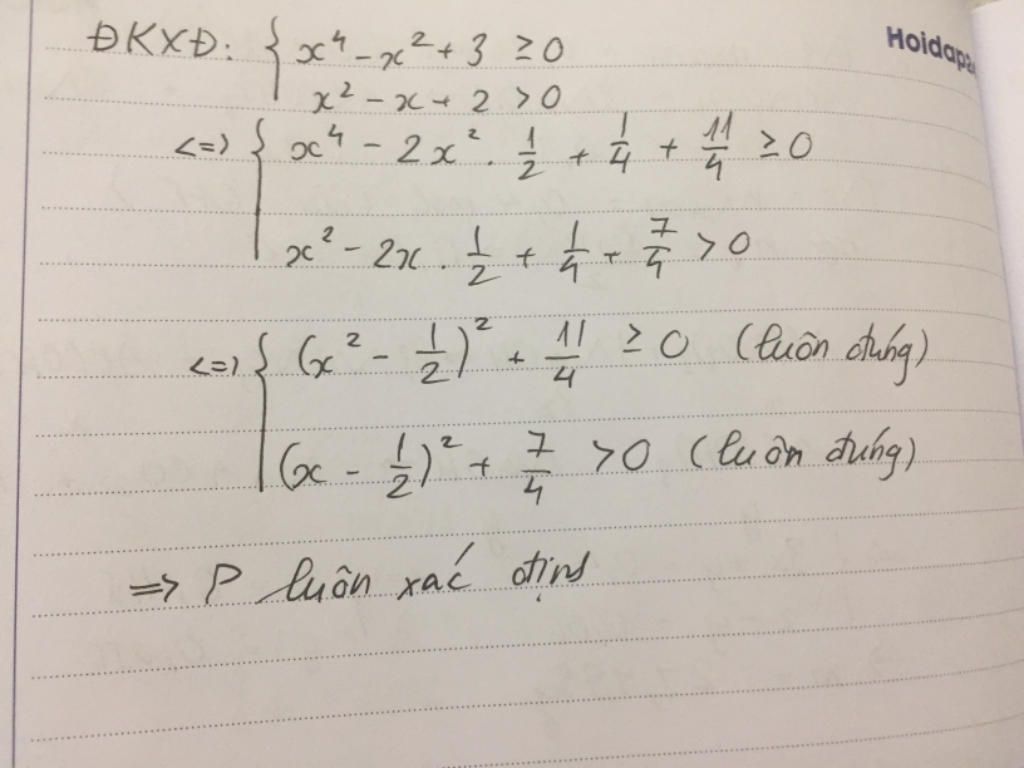 ĐKXĐ: { x⁴ - x² + 3 ≥ 0
x² - x + 2 > 0
<=> { x⁴ - 2x² . 1/2 + 1/4 + 11/4 ≥ 0
x² - 2x . 1/2 + 1/4 + 7/4 > 0
<=> { (x² - 1/2)² + 11/4 ≥ 0 (luôn đúng)
(x - 1/2)² + 7/4 > 0 (luôn đúng)
=> P luôn xác định